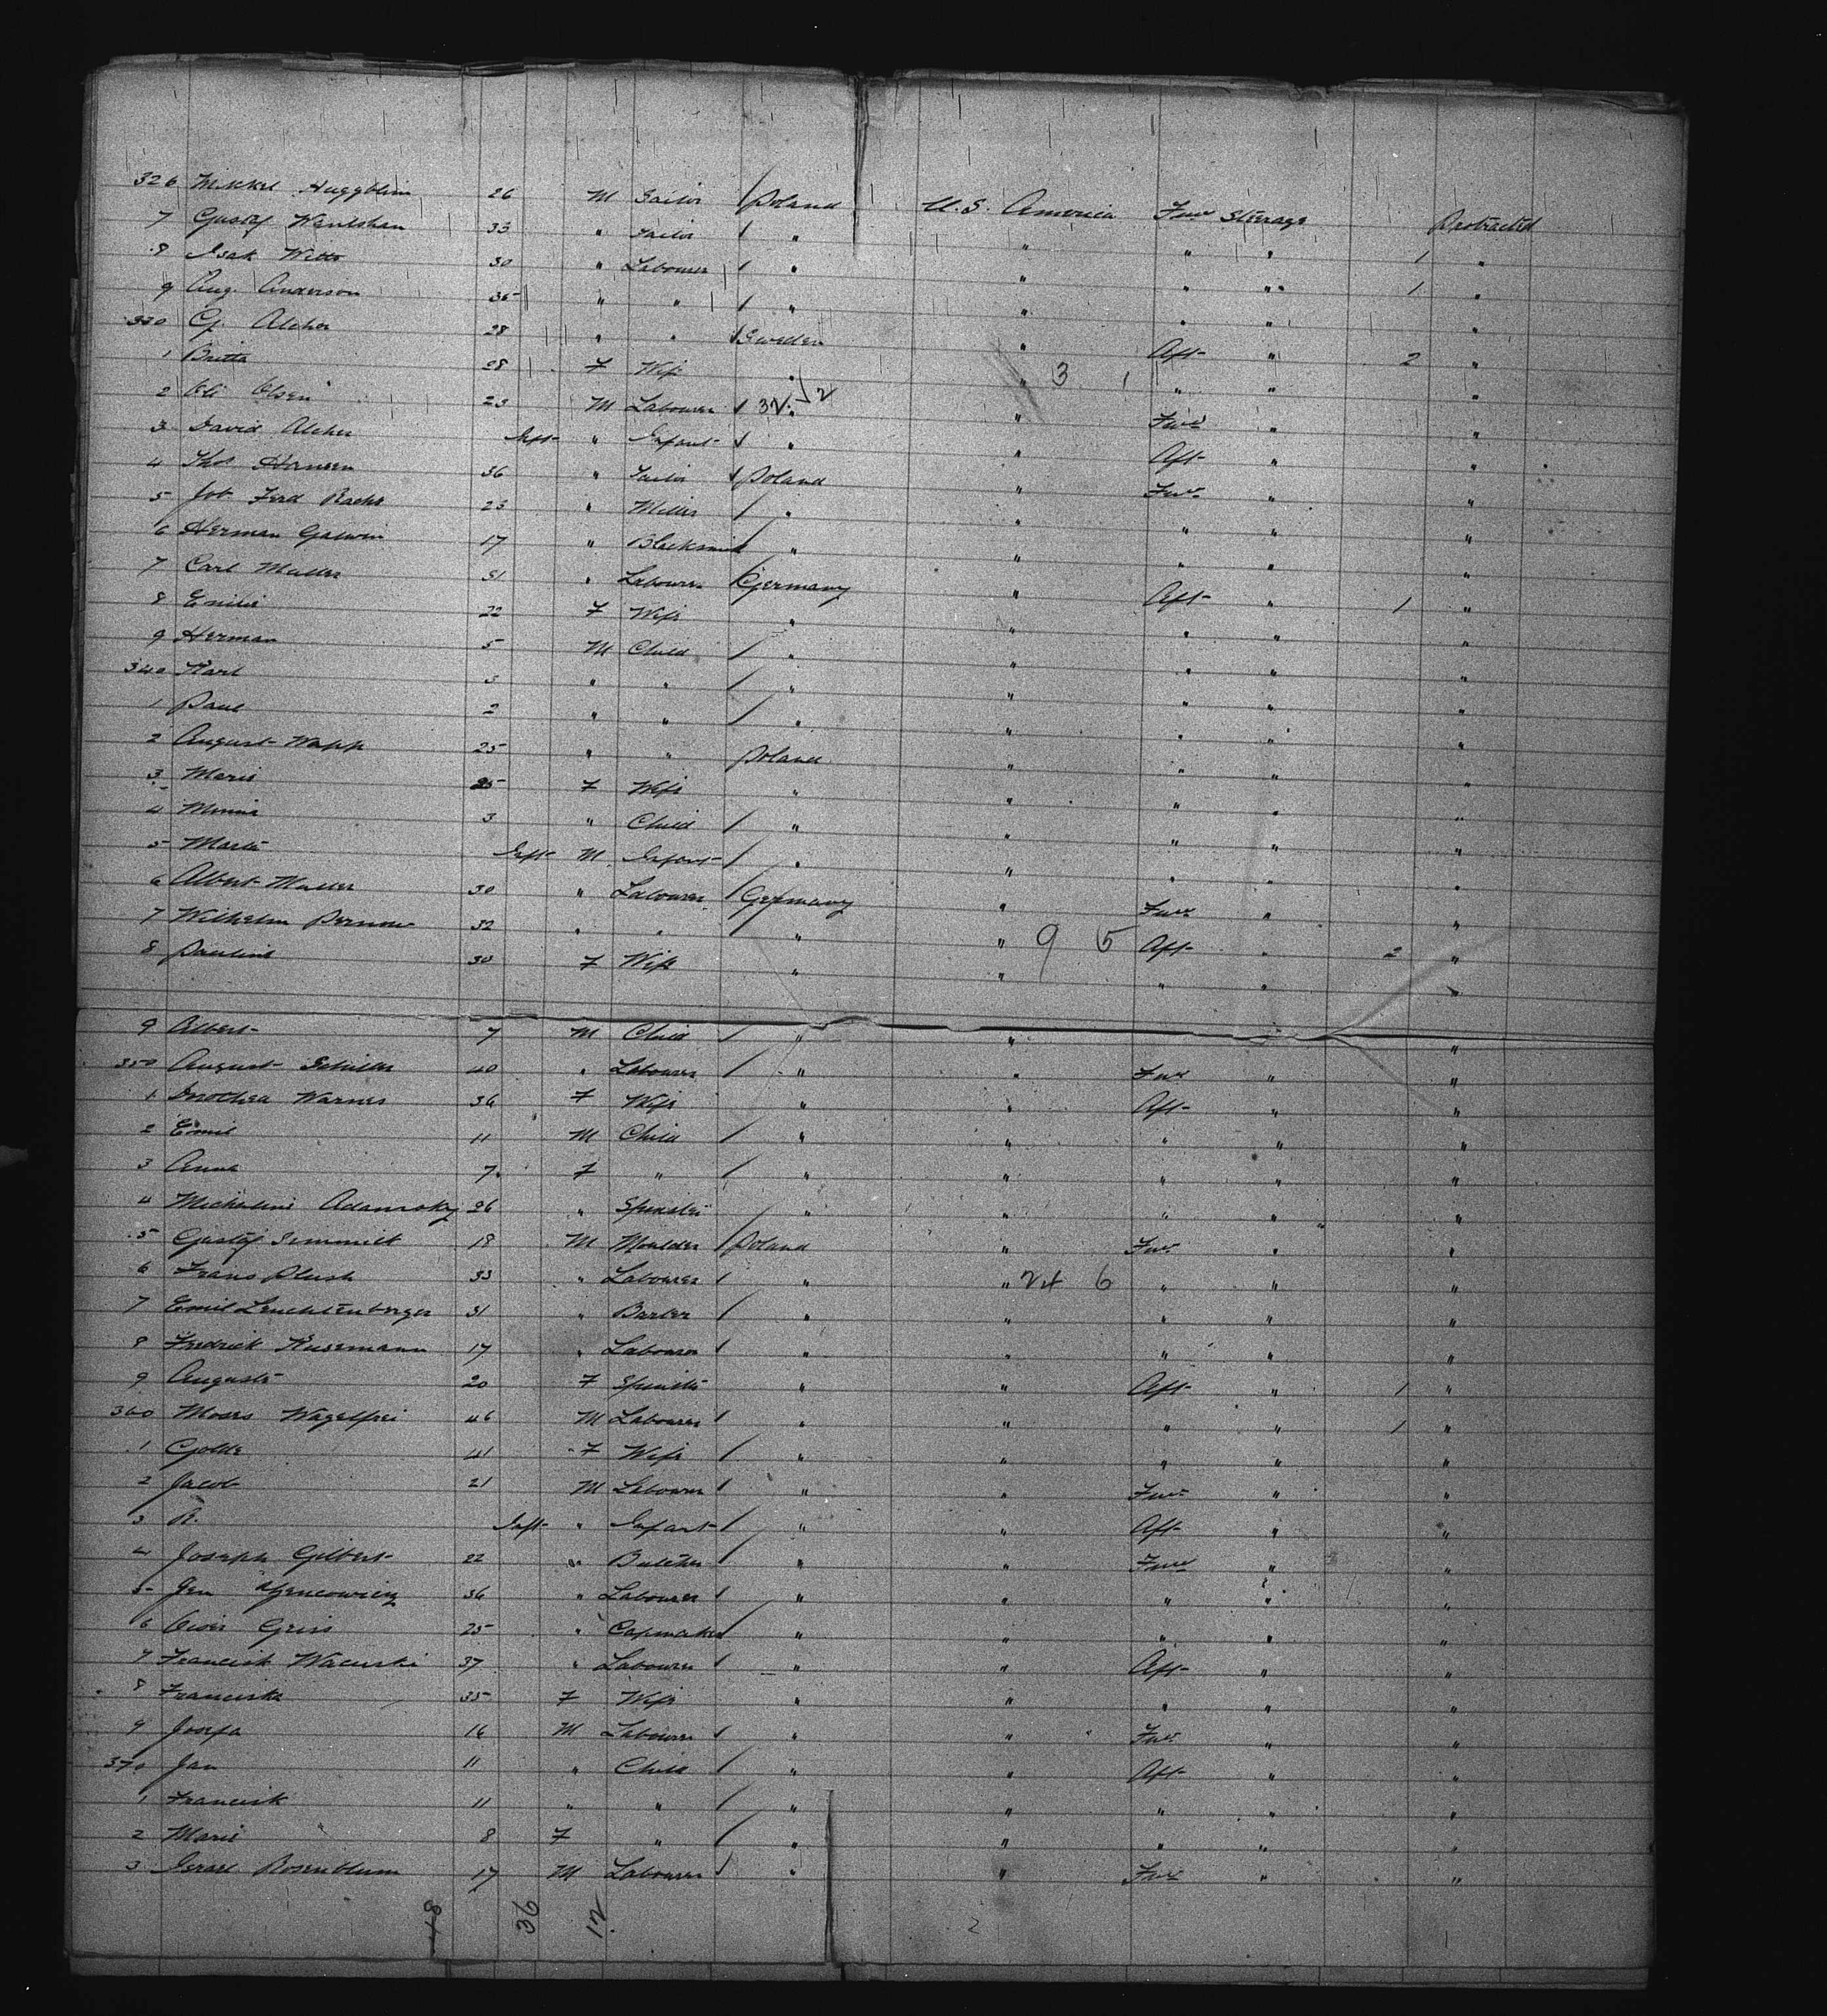 326 Mikkel Huggblim 26 M Sailor / Poland U.S. America Fwd Steerage Protracted
7 Gustaf Wentshan 33 " Tailor / " " " " 1 "
8 Isak Witts 30 " Labourer / " " " " 1 "
9 Aug. Anderson 35 " " / " " " " "
330 G. Alcher 28 " " / Sweden " Aft " 2 "
1 Britta 28 F Wife " " 3 1 " " "
2 Ole Olsen 23 M Labourer / 32 " " Fwd " "
3 David Alcher Inft " Infant / " " Aft " "
4 Thos Hansen 36 " Tailor / Poland " Fwd " "
5 Joh. Ferd Rachs 23 " Miller / " " " " "
6 Herman Galwin 17 " Blacksmith " " " " "
7 Carl Muller 31 " Labourer / Germany " Aft " 1 "
8 Emilie 22 F Wife " " " " "
9 Herman 5 M Child / " " " " "
340 Karl 3 " " / " " " " "
1 Paul 2 " " / " " " " "
2 August Wapp 25 " " Poland " " " "
3 Marie 25 F Wife " " " " "
4 Minnie 3 " Child / " " " " "
5 Marta Inft M Infant / " " " " "
6 Albert Muller 30 " Labourer / Germany " Fwd " "
7 Wilhelm Pernow 32 " " " " 9 5 Aft " 2 "
8 Pauline 30 F Wife " " " " "
9 Albert 7 M Child / " " "
350 August Schiller 40 " Labourer / " " Fwd " "
1 Dorothea Warnes 36 F Wife " " Aft " "
2 Emil 11 M Child / " " " " "
3 Anna 7 F " / " " " " "
4 Micheline Adamsky 26 " Spinster " " " " "
5 Gustaf Simmich 18 M Moulder / Poland " Fwd " "
6 Frans Plush 33 " Labourer / " " 24 6 " " "
7 Emil Leuchtenberger 31 " Barber / " " " " "
8 Fredrick Husemann 17 " Labourer / " " " " "
9 Auguste 20 F Spinster " " Aft " 1 "
360 Moses Wagelfrei 46 M Labourer / " " " " 1 "
1 Golde 41 F Wife / " " " " "
2 Jacob 21 M Labourer / " " Fwd " "
3 R. Inft " Infant / " " Aft " "
4 Joseph Gilbert 22 " Butcher / " " Fwd " "
5 Jen 36 " Labourer / " " " " "
6 Griss 25 " Capmaker / " " " " "
7 Francisk Wacurski 37 " Labourer / " " Aft " "
8 Franciska 35 F Wife " " " " "
9 Josefa 16 M Labourer / " " Fwd " "
370 Jan 11 " Child / " " Aft " "
1 Francisk 11 " " / " " " " "
2 Marie 8 F " / " " " " "
3 Israel Rosenblum 17 M Labourer / " " Fwd " "
48 36 12 2